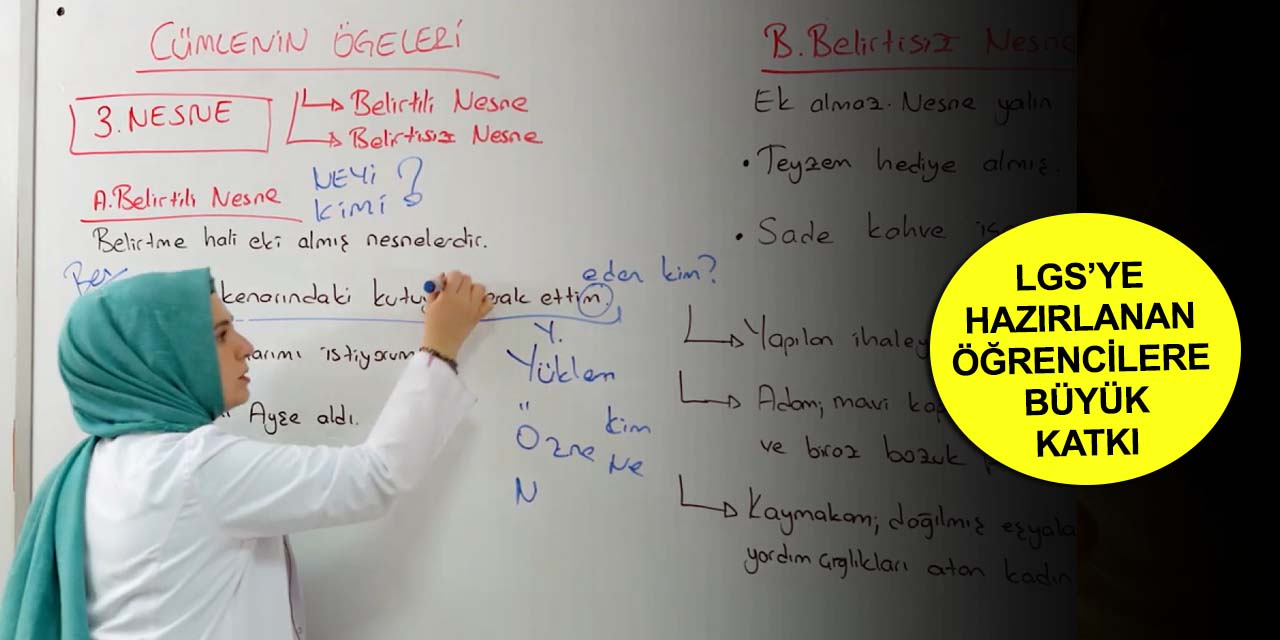 CÜMLENİN ÖGELERİ
3. NESNE
Belirtili Nesne
Belirtisiz Nesne
A. Belirtili Nesne
NEYİ
KİMİ ?
Belirtme hali eki almış nesnelerdir.
Ben
kenarındaki ettim.
eden kim?
istiyorum
Ayşe aldı.
Y.
Yüklem
"
Özne kim
Ne
N
B. Belirtisiz Nesne
Ek almaz. Nesne yalın
• Teyzem hediye almış.
• Sade kahve
Yapılan
Adam; mavi
ve biraz bozuk
Kaymakam; dağılmış
yardım çığlıkları atan kadın
LGS’YE
HAZIRLANAN
ÖĞRENCİLERE
BÜYÜK
KATKI